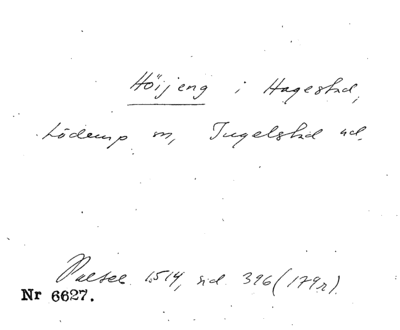 Höijeng i Hagestad,
Löderup sn, Ingelstad hd.
Palteb. 1514, sid. 396 (179r).
Nr 6627.